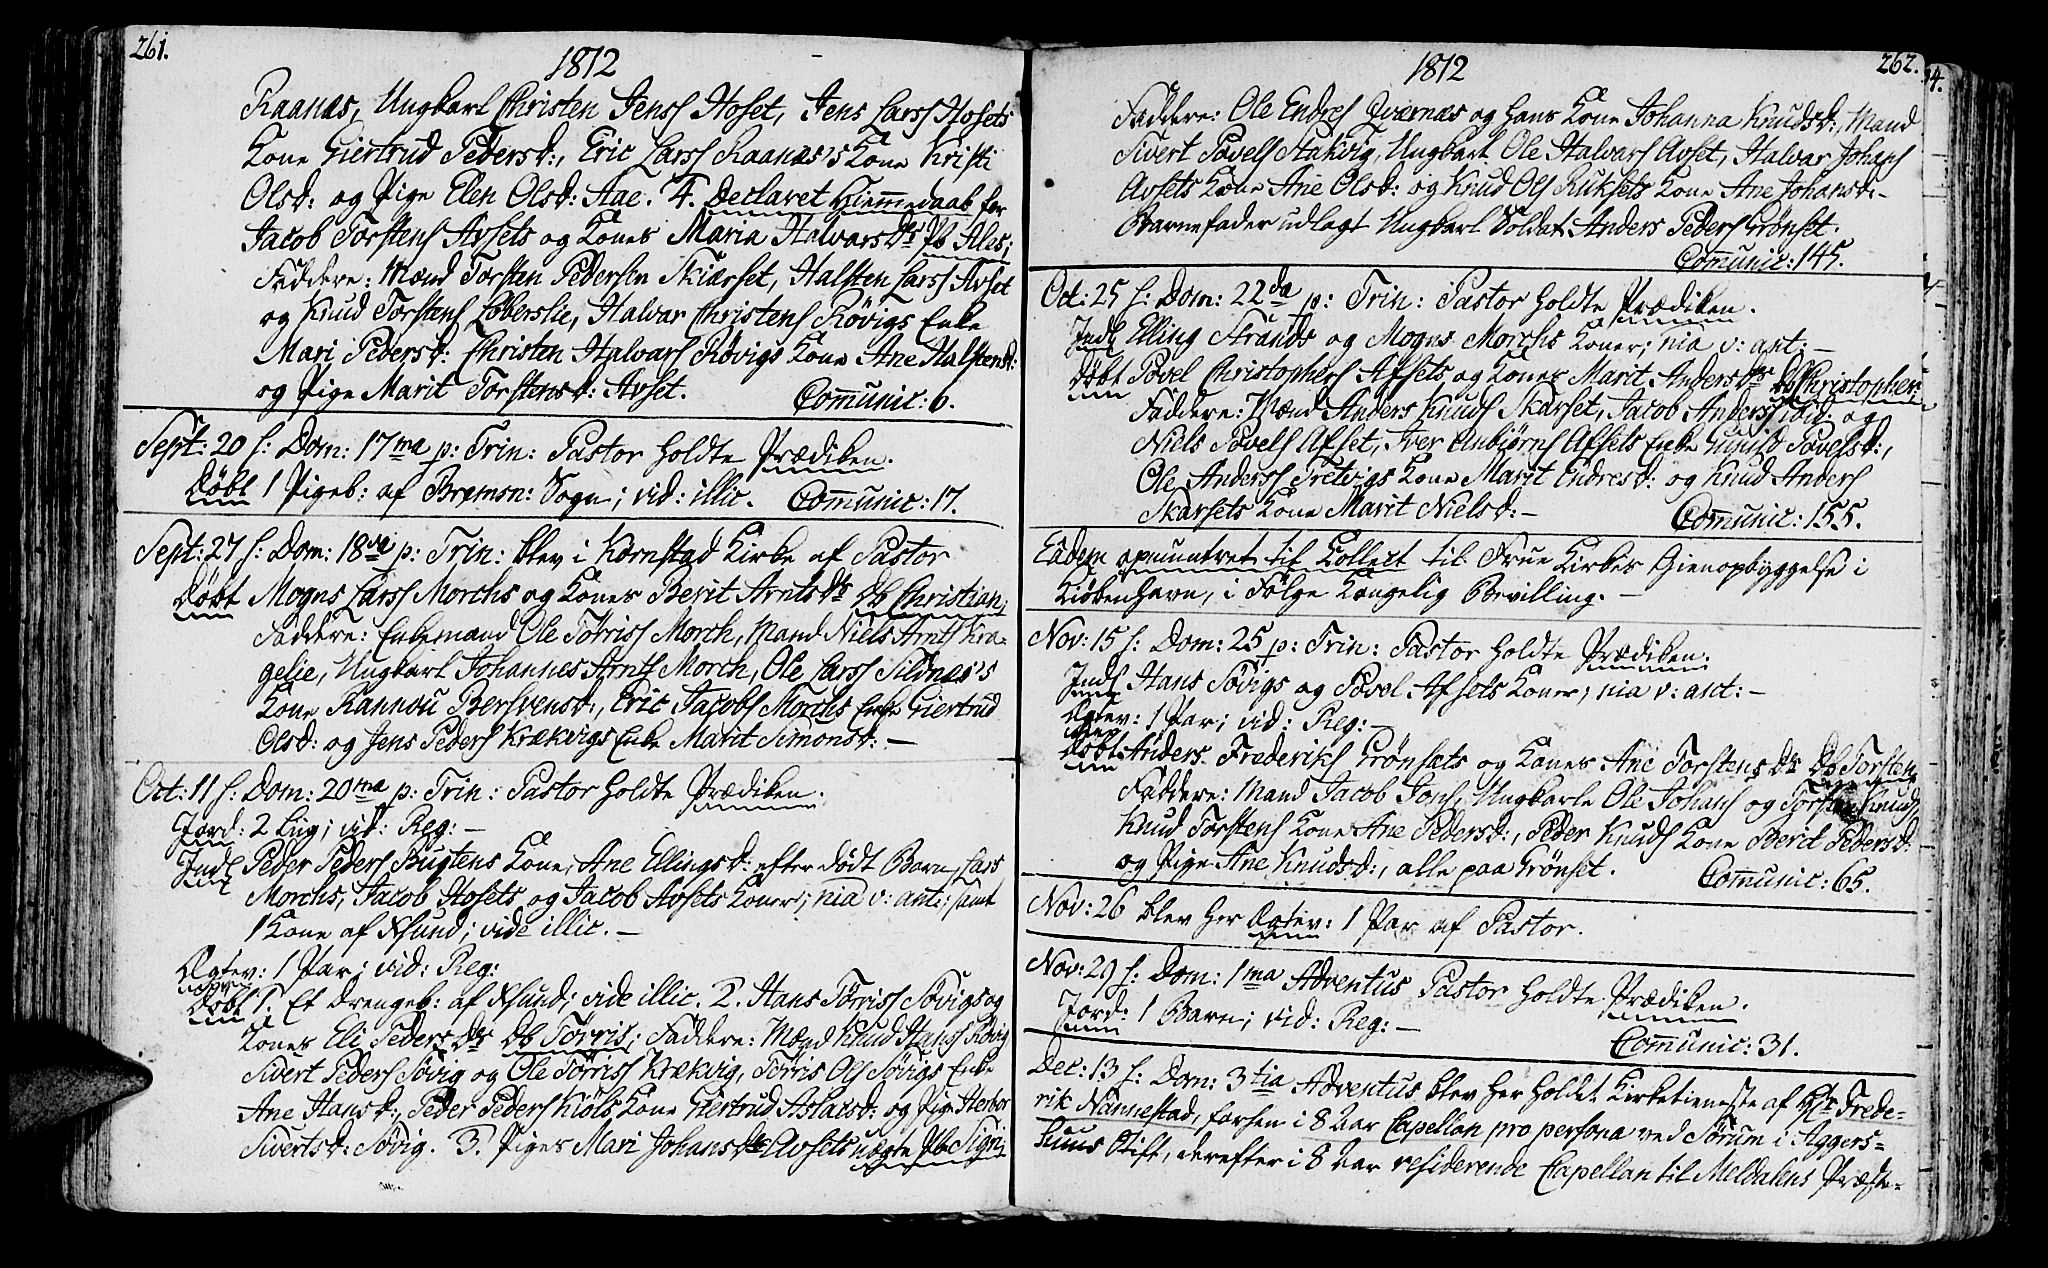 261.
1812
Raanæs, Ungkarl Christen Jenss Hoset, Jens Larss Hosets
Kone Giertrud Pedersd:, Eric Larss Raanæs's Kone Kristi
Olsd: og Pige Elen Olsd: Aae. 4. Declaret Hiem̄edaab for
Jacob Torstens Avsets og Kones Maria Halvars Dr Pb Ales;
Faddere: Mænd Torsten Pedersen Skiærset, Halsten Larss Avset
og Knud Torstens Loberslie, Halvar Christens Røvigs Enke
Mari Pedersd: Christen Halvars Røvigs Kone Ane Halstensd:
og Pige Marit Torstensd: Avset. Com̄unic: 6.
Sept: 20 f: Dom: 17ma p: Trin: Pastor holdte Prædiken.
Døbt 1 Pigeb: af Bremsn: Sogn; vid: illic. Com̄unic: 17.
Sept: 27 f: Dom: 18va p: Trin: blev i Kornstad Kirke af Pastor
Døbt Mogns Larss Morchs og Kones Berit Arnts Dr Db Christian;
Faddere: Enkemand Ole Tørriss Morch, Mand Niels Arnts Kra-
gelie, Ungkarl Johannes Arnts Morch, Ole Larss Sildnæs's
Kone Rannou Bersvensd:, Eric Jacobs Morchs Enke Giertrud
Olsd: og Jens Peders Krækvigs Enke Marit Simonsd: —
Oct: 11 f: Dom: 20ma p: Trin: Pastor holdte Prædiken.
Jord: 2 Liig; vid: Reg: —
Indl Peder Peders Bugtens Kone, Ane Ellingsd: efter dødt Barn, Lars
Morchs, Jacob Hosets og Jacob Avsets Koner; nia v: ant: samt
1 Kone af Xsund; vide illic. —
Ægtev: 1 Par; vid: Reg:
Døbt 1. Et Drengeb: af Xsund; vide illic. 2. Hans Tørriss Søvigs og
Kones Eli Peders Dr Db Tørris; Faddere: Mænd Knud Hanss Søvig
Sivert Peders Søvig og Ole Tørriss Krækvig, Tørris Ols Søvigs Enke
Ane Hansd:, Peder Peders Kiøls Kone Giertrud Aslacsd: og Pige Herbor
Sivertsd: Søvig. 3. Piges Mari Johans Dr Avsets uægte Pb Signi;
262.
1812
Faddere: Ole Endres Qvernæs og hans Kone Johanna Knudsd:, Mand
Sivert Povels Stakvig, Ungkarl Ole Halvars Avset, Halvar Johans
Avsets Kone Ane Olsd: og Knud Ols Ruksets Kone Ane Johansd: -
Barnefader udlagt Ungkarl Soldat Anders Peders Grønset.
Com̄unic: 145.
Oct: 25 f: Dom: 22da p: Trin: Pastor holdte Prædiken.
Indl Elling Strands og Mogns Morchs Koner; nia v: ant: —
Døbt Povel Christophers Afsets og Kones Marit Anders Dr Db Christopher;
Faddere: Mænd Anders Knuds Skarset, Jacob Anderss ibid: og
Niels Povels Afset, Iver Anbiørns Afsets Enke Gunild Povelsd:,
Ole Anderss Tretvigs Kone Marit Endresd: og Knud Anders
Skarsets Kone Marit Nielsd: — Com̄unic: 155.
Eadem opmuntret til Collect til Frue Kirkes Gienopbyggelse i
Kiøbenhavn, i Følge Kongelig Bevilling. —
Nov: 15 f: Dom: 25 p: Trin: Pastor holdte Prædiken.
Indl Hans Søvigs og Povel Afsets Koner; nia v: ant: —
Ægtev: 1 Par; vid: Reg: —
Døbt Anders Frederiks Grønsets og Kones Ane Torstens Dr Db Torsten
Faddere: Mand Jacob Jons, Ungkarle Ole Johans og Torsten Knuds
Knud Torstens Kone Ane Pedersd:, Peder Knuds Kone Berit Pedersd:
og Pige Ane Knudsd:, alle paa Grønset. Com̄unic: 65.
Nov: 26 blev her Ægtev: 1 Par af Pastor.
Nov: 29 f: Dom: 1ma Adventus Pastor holdte Prædiken.
Jord: 1 Barn; vid: Reg: —
Com̄unic: 31.
Dec: 13 f: Dom: 3tia Adventus blev her holdt Kirketieneste af Hr Frede-
rik Nannestad, forhen i 8 Aar Capellan pro persona ved Sørum i Aggers-
huus Stift, derefter i 8 Aar residerende Capellan til Meldalens Præste-